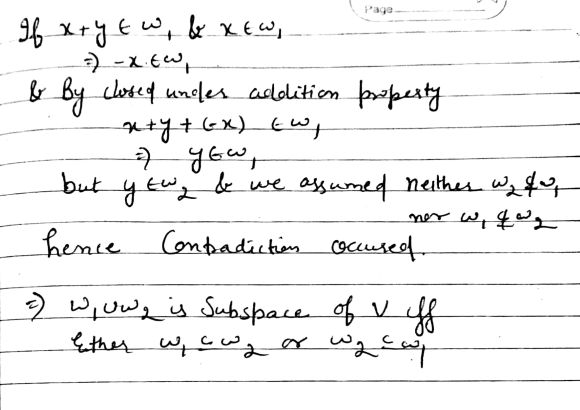 Page
If x+y ∈ W₁ & x ∈ W₁
⇒ -x ∈ W₁
& By closed under addition property
x+y+(-x) ∈ W₁
⇒ y ∈ W₁
but y ∈ W₂ & we assumed neither W₂ ⊄ W₁
nor W₁ ⊄ W₂
hence Contradiction occured.
⇒ W₁∪W₂ is Subspace of V iff
Either W₁ ⊆ W₂ or W₂ ⊆ W₁